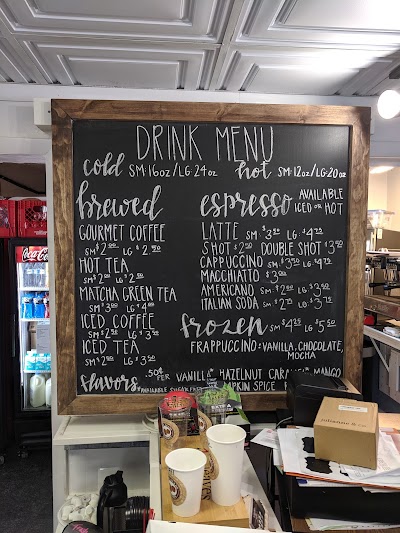 DRINK MENU
cold SM:16oz/LG:24oz hot SM:12oz/LG:20oz
brewed
GOURMET COFFEE
SM $2.00 LG $2.50
HOT TEA
SM $2.00 LG $2.50
MATCHA GREEN TEA
SM $3.00 LG $4.00
ICED COFFEE
SM $2.50 LG $3.50
ICED TEA
SM $2.00 LG $3.50
flavors .50¢ PER VANILLA HAZELNUT CARAMEL MANGO
PUMPKIN SPICE
espresso AVAILABLE ICED OR HOT
LATTE SM $3.50 LG $4.75
SHOT $2.50 DOUBLE SHOT $3.90
CAPPUCCINO SM $3.50 LG $4.75
MACCHIATTO $3.00
AMERICANO SM $2.00 LG $3.00
ITALIAN SODA SM $2.75 LG $3.75
frozen SM $4.25 LG $5.50
FRAPPUCCINO: VANILLA, CHOCOLATE,
MOCHA
Coca-Cola